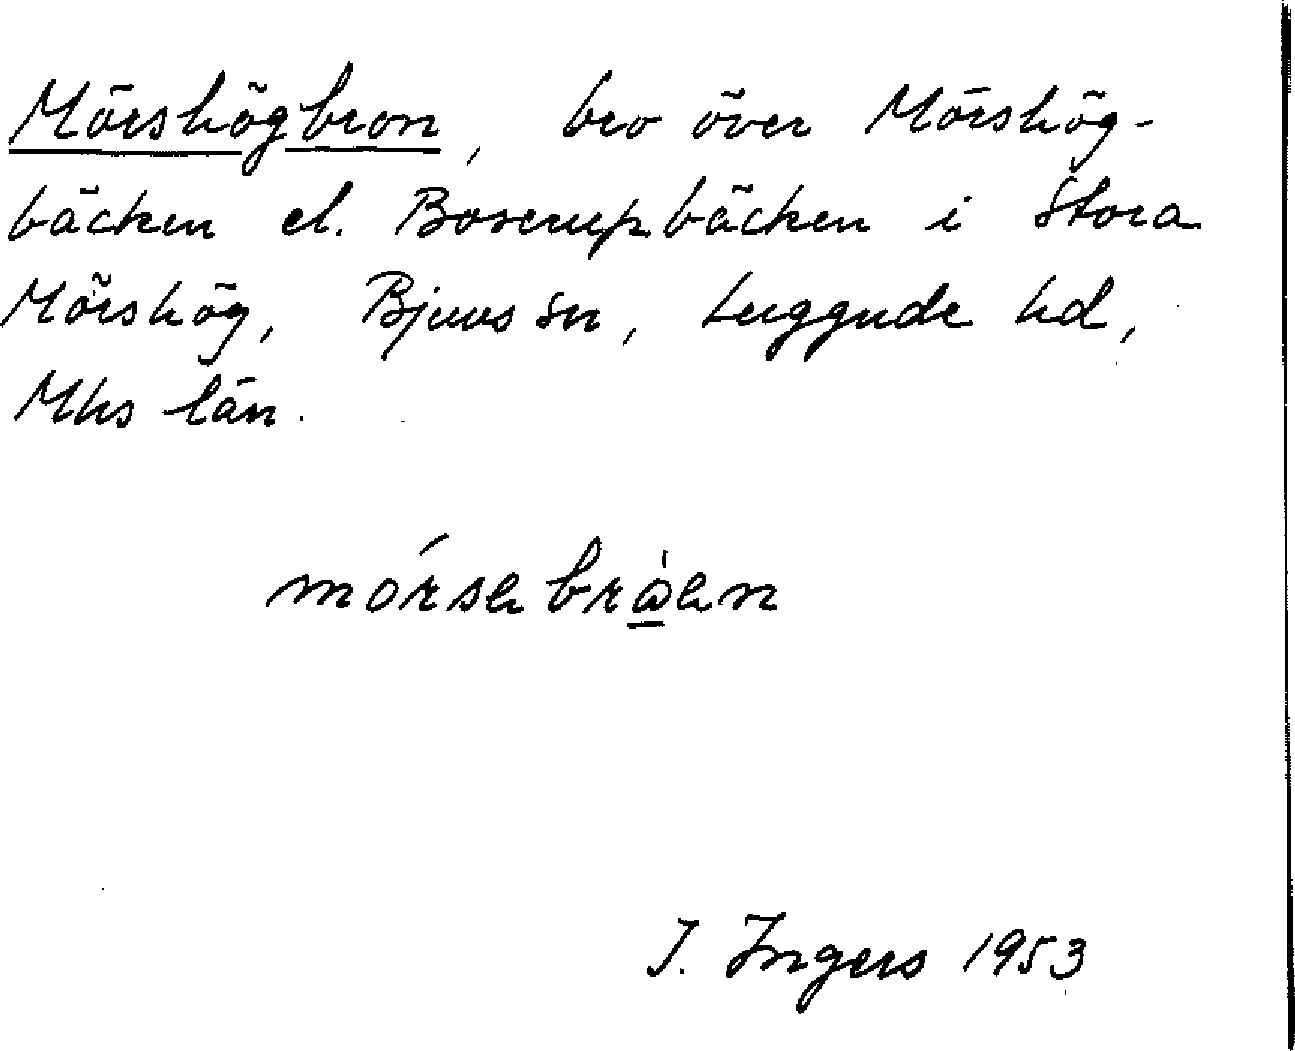 Mörshögbron, bro över Mörshög-
bäcken el. Boserupbäcken i Stora
Mörshög, Bjuvs sn, Luggude hd,
Mhs län.
mórsabrò̱an
I. Ingers 1953